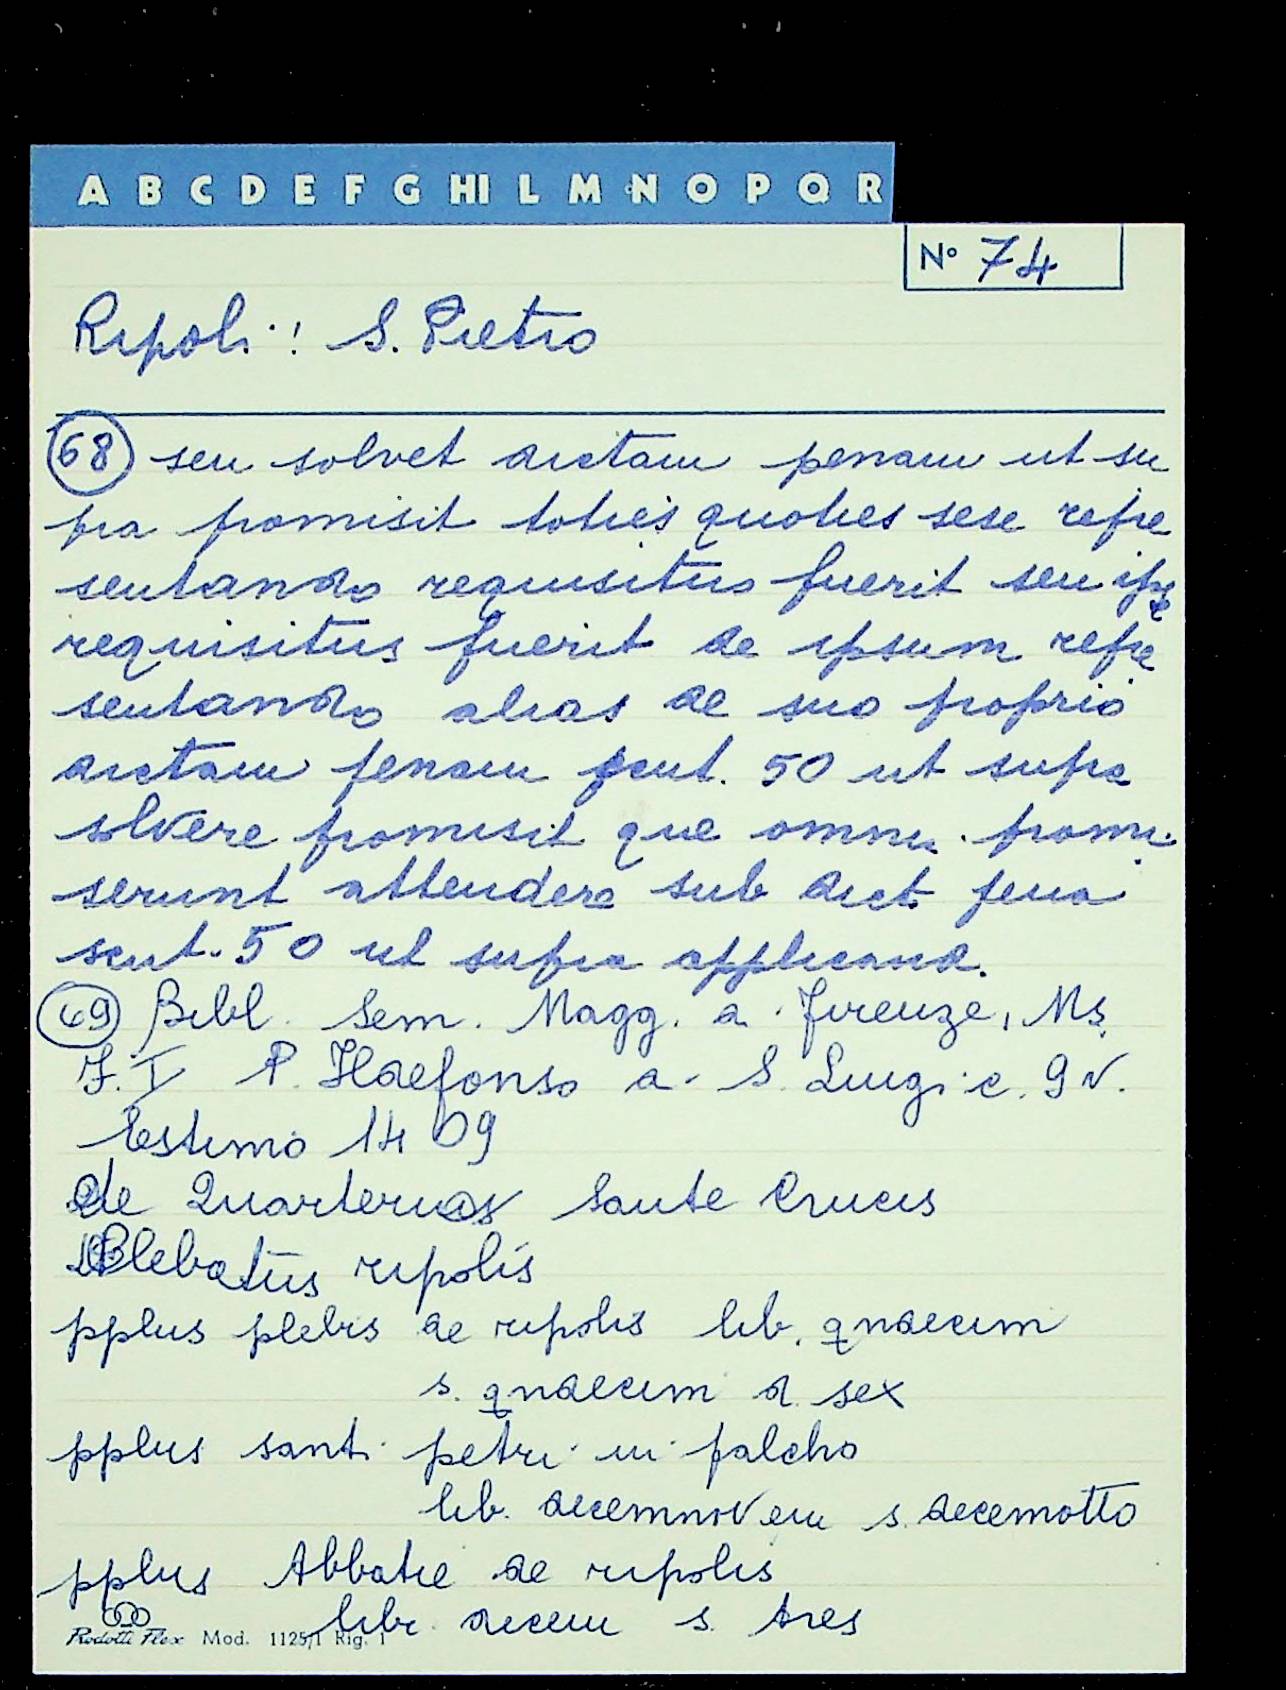 A B C D E F G HI L M N O P Q R
N° 74
Ripoli: S. Pietro
68 seu solvet dictam penam ut su
pra promisit toties quoties sese repre
sentando requisitus fuerit seu ipse
requisitus fuerit de ipsum repre
sentando alias de suo proprio
dictam penam scut. 50 ut supra
solvere promisit que omnia promi
serunt attendere sub dict. pena
scut. 50 ut supra applicand.
69 Bibl. Sem. Magg. a Firenze, Ms.
J. I P. Ildefonso a S. Luigi c. 9 v.
Estimo 1409
de Quarterios Sante Crucis
Plebatus ripolis
pplus plebis de ripolis lib. qndecim
s. qndecim d. sex
pplus santi petri in palcho
lib. decemnovem s. decemotto
pplus Abbatie de ripolis
libr. decem s. tres
Rodotti Flex Mod. 1125/1 Rig. 1